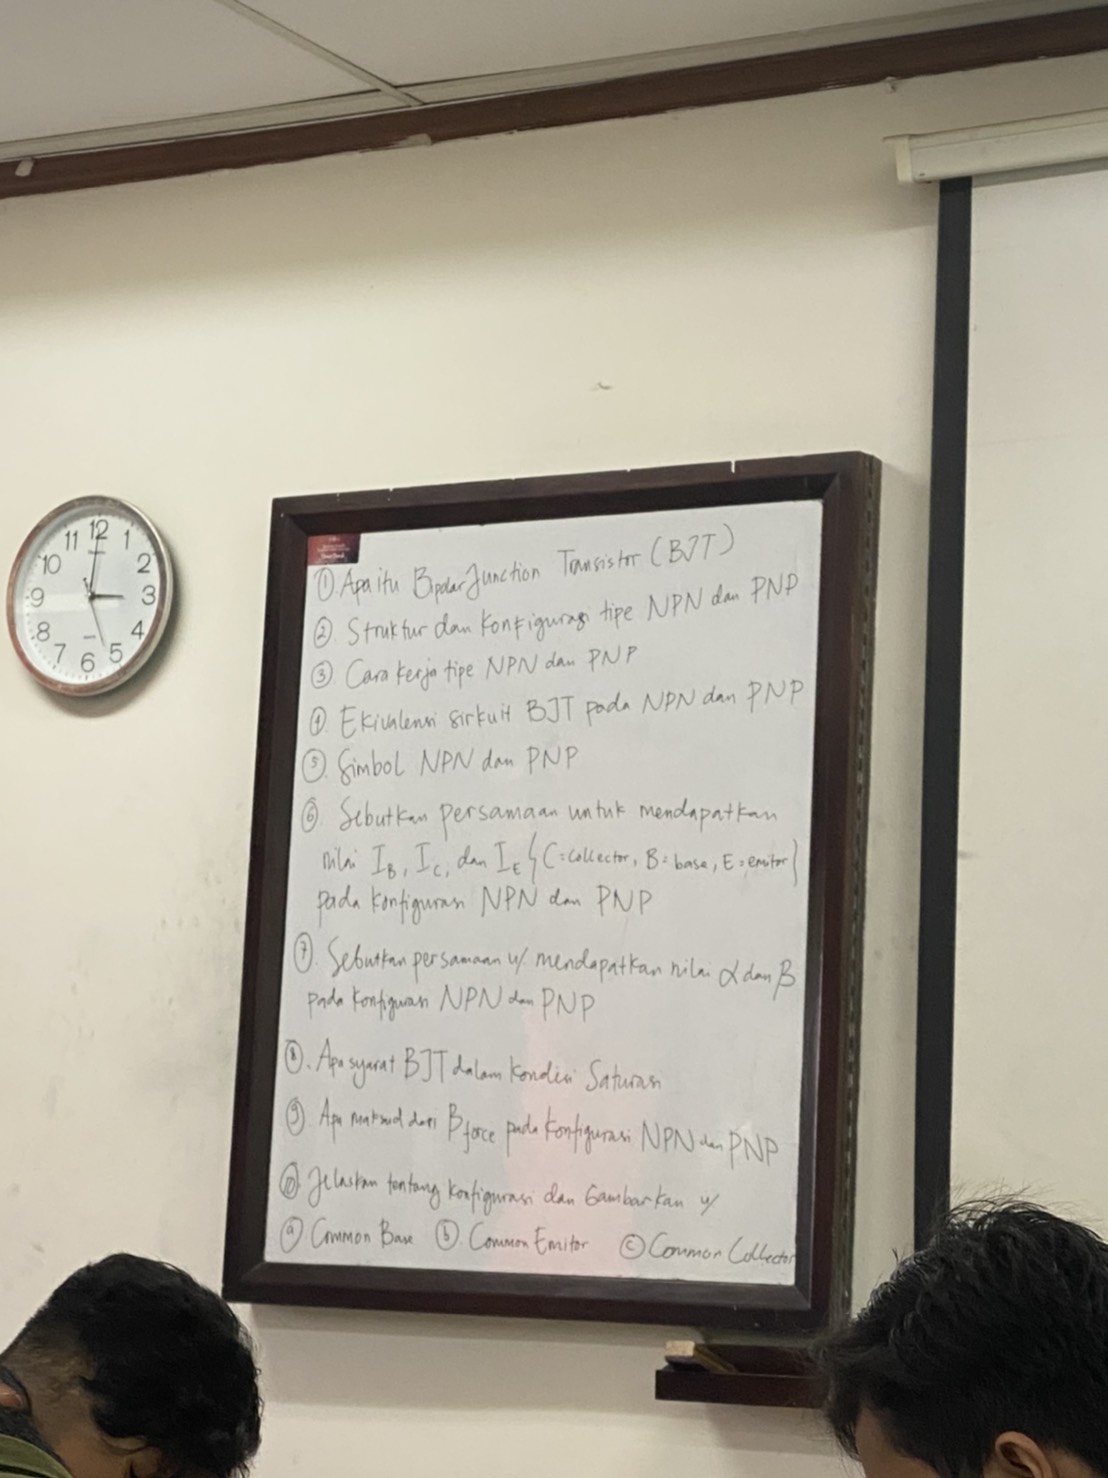 11 12 1
10 2
9 3
8 4
7 6 5
① Apa itu Bipolar Junction Transistor (BJT)
② Struktur dan Konfigurasi tipe NPN dan PNP
③ Cara kerja tipe NPN dan PNP
④ Ekivalensi sirkuit BJT pada NPN dan PNP
⑤ Simbol NPN dan PNP
⑥ Sebutkan persamaan untuk mendapatkan
nilai IB, IC, dan IE {C=collector, B=base, E=emitor}
pada konfigurasi NPN dan PNP
⑦ Sebutkan persamaan u/ mendapatkan nilai α dan β
pada konfigurasi NPN dan PNP
⑧. Apa syarat BJT dalam kondisi Saturasi
⑨. Apa maksud dari βforce pada konfigurasi NPN dan PNP
⑩ Jelaskan tentang konfigurasi dan Gambarkan u/
ⓐ Common Base ⓑ. Common Emitor ⓒ Common Collector